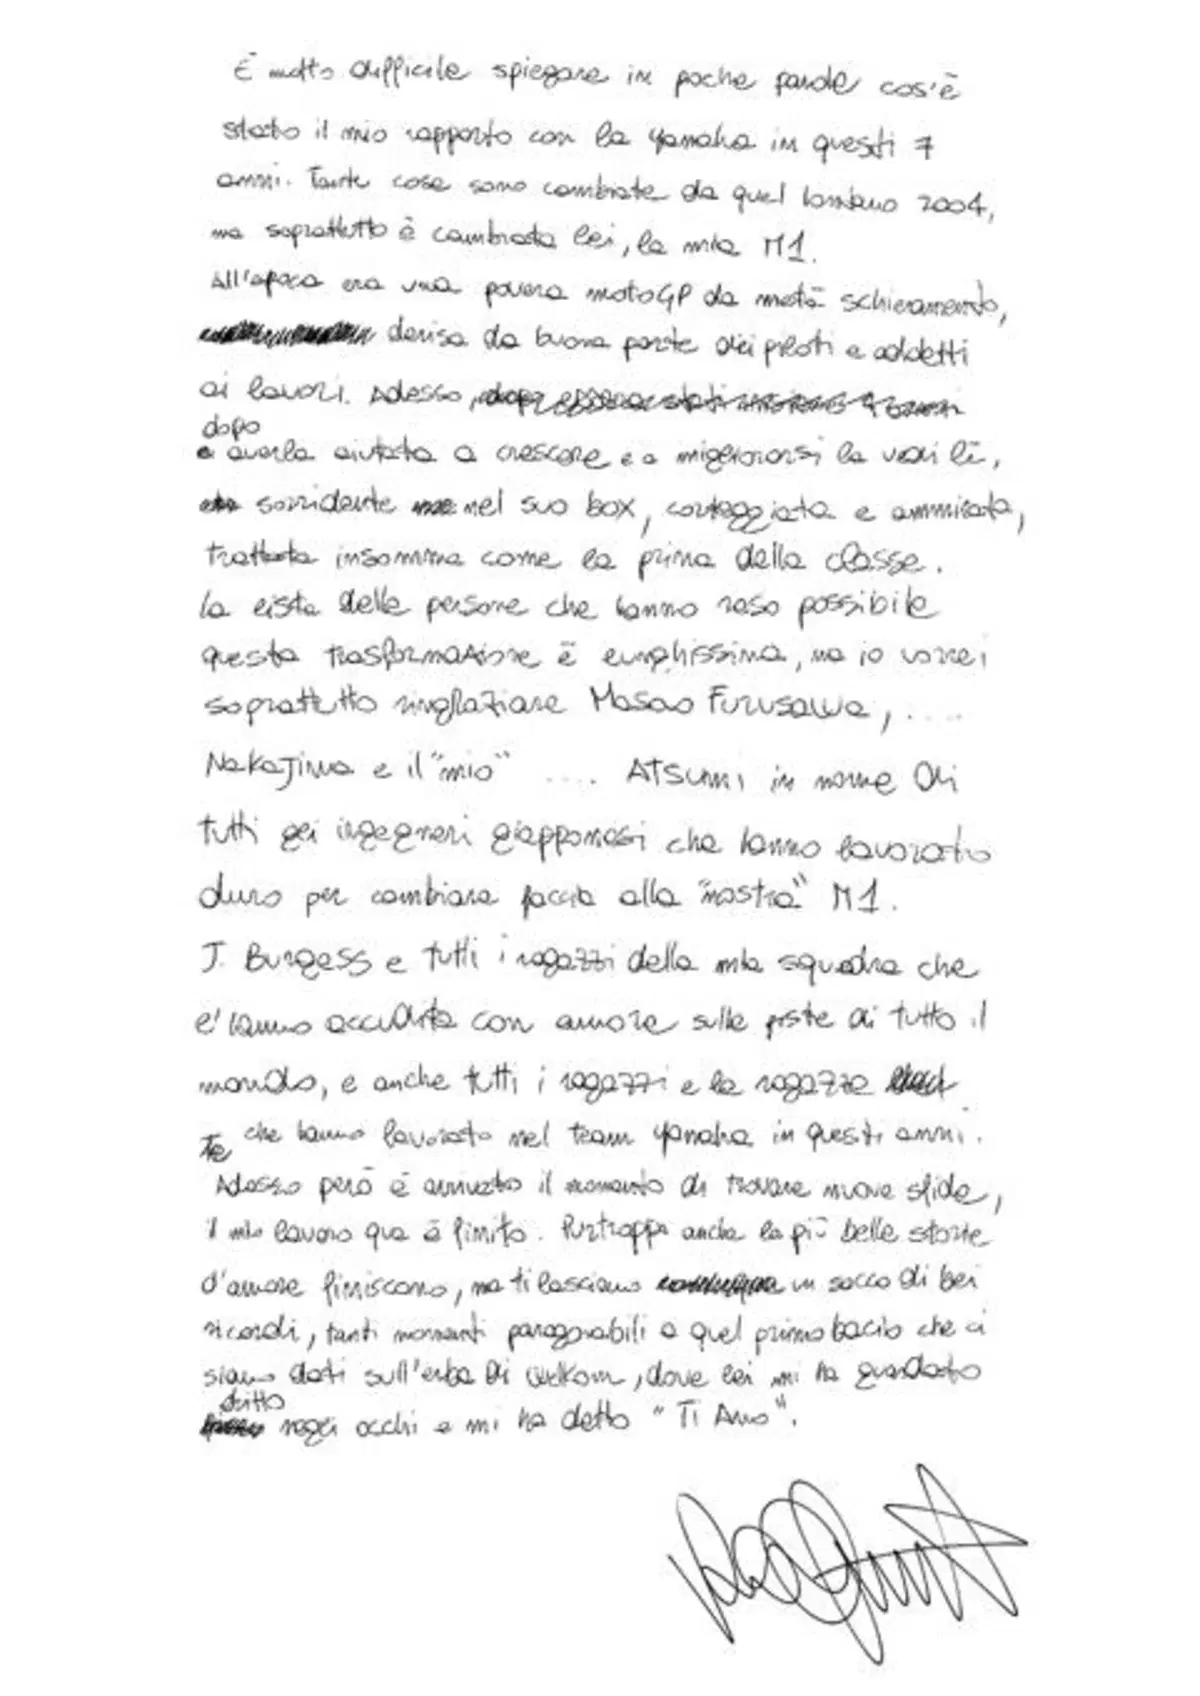 È molto difficile spiegare in poche parole cos'è
stato il mio rapporto con la Yamaha in questi 7
anni. Tante cose sono cambiate da quel lontano 2004,
ma soprattutto è cambiata lei, la mia M1.
All'epoca era una povera motoGP da metà schieramento,
derisa da buona parte dei piloti e addetti
ai lavori. Adesso,
dopo
averla aiutata a crescere e a migliorarsi la vedi lì,
sorridente nel suo box, corteggiata e ammirata,
trattata insomma come la prima della classe.
La lista delle persone che hanno reso possibile
questa trasformazione è lunghissima, ma io vorrei
soprattutto ringraziare Masao Furusawa, ....
Nakajima e il "mio" .... ATSUMI in nome di
tutti gli ingegneri giapponesi che hanno lavorato
duro per cambiare faccia alla "nostra" M1.
J. Burgess e tutti i ragazzi della mia squadra che
l'hanno accudita con amore sulle piste di tutto il
mondo, e anche tutti i ragazzi e le ragazze
che hanno lavorato nel team Yamaha in questi anni.
Adesso però è arrivato il momento di trovare nuove sfide,
il mio lavoro qua è finito. Purtroppo anche le più belle storie
d'amore finiscono, ma ti lasciano un sacco di bei
ricordi, tanti momenti paragonabili a quel primo bacio che ci
siamo dati sull'erba di Welkom, dove lei mi ha guardato
dritto
negli occhi e mi ha detto "Ti Amo".